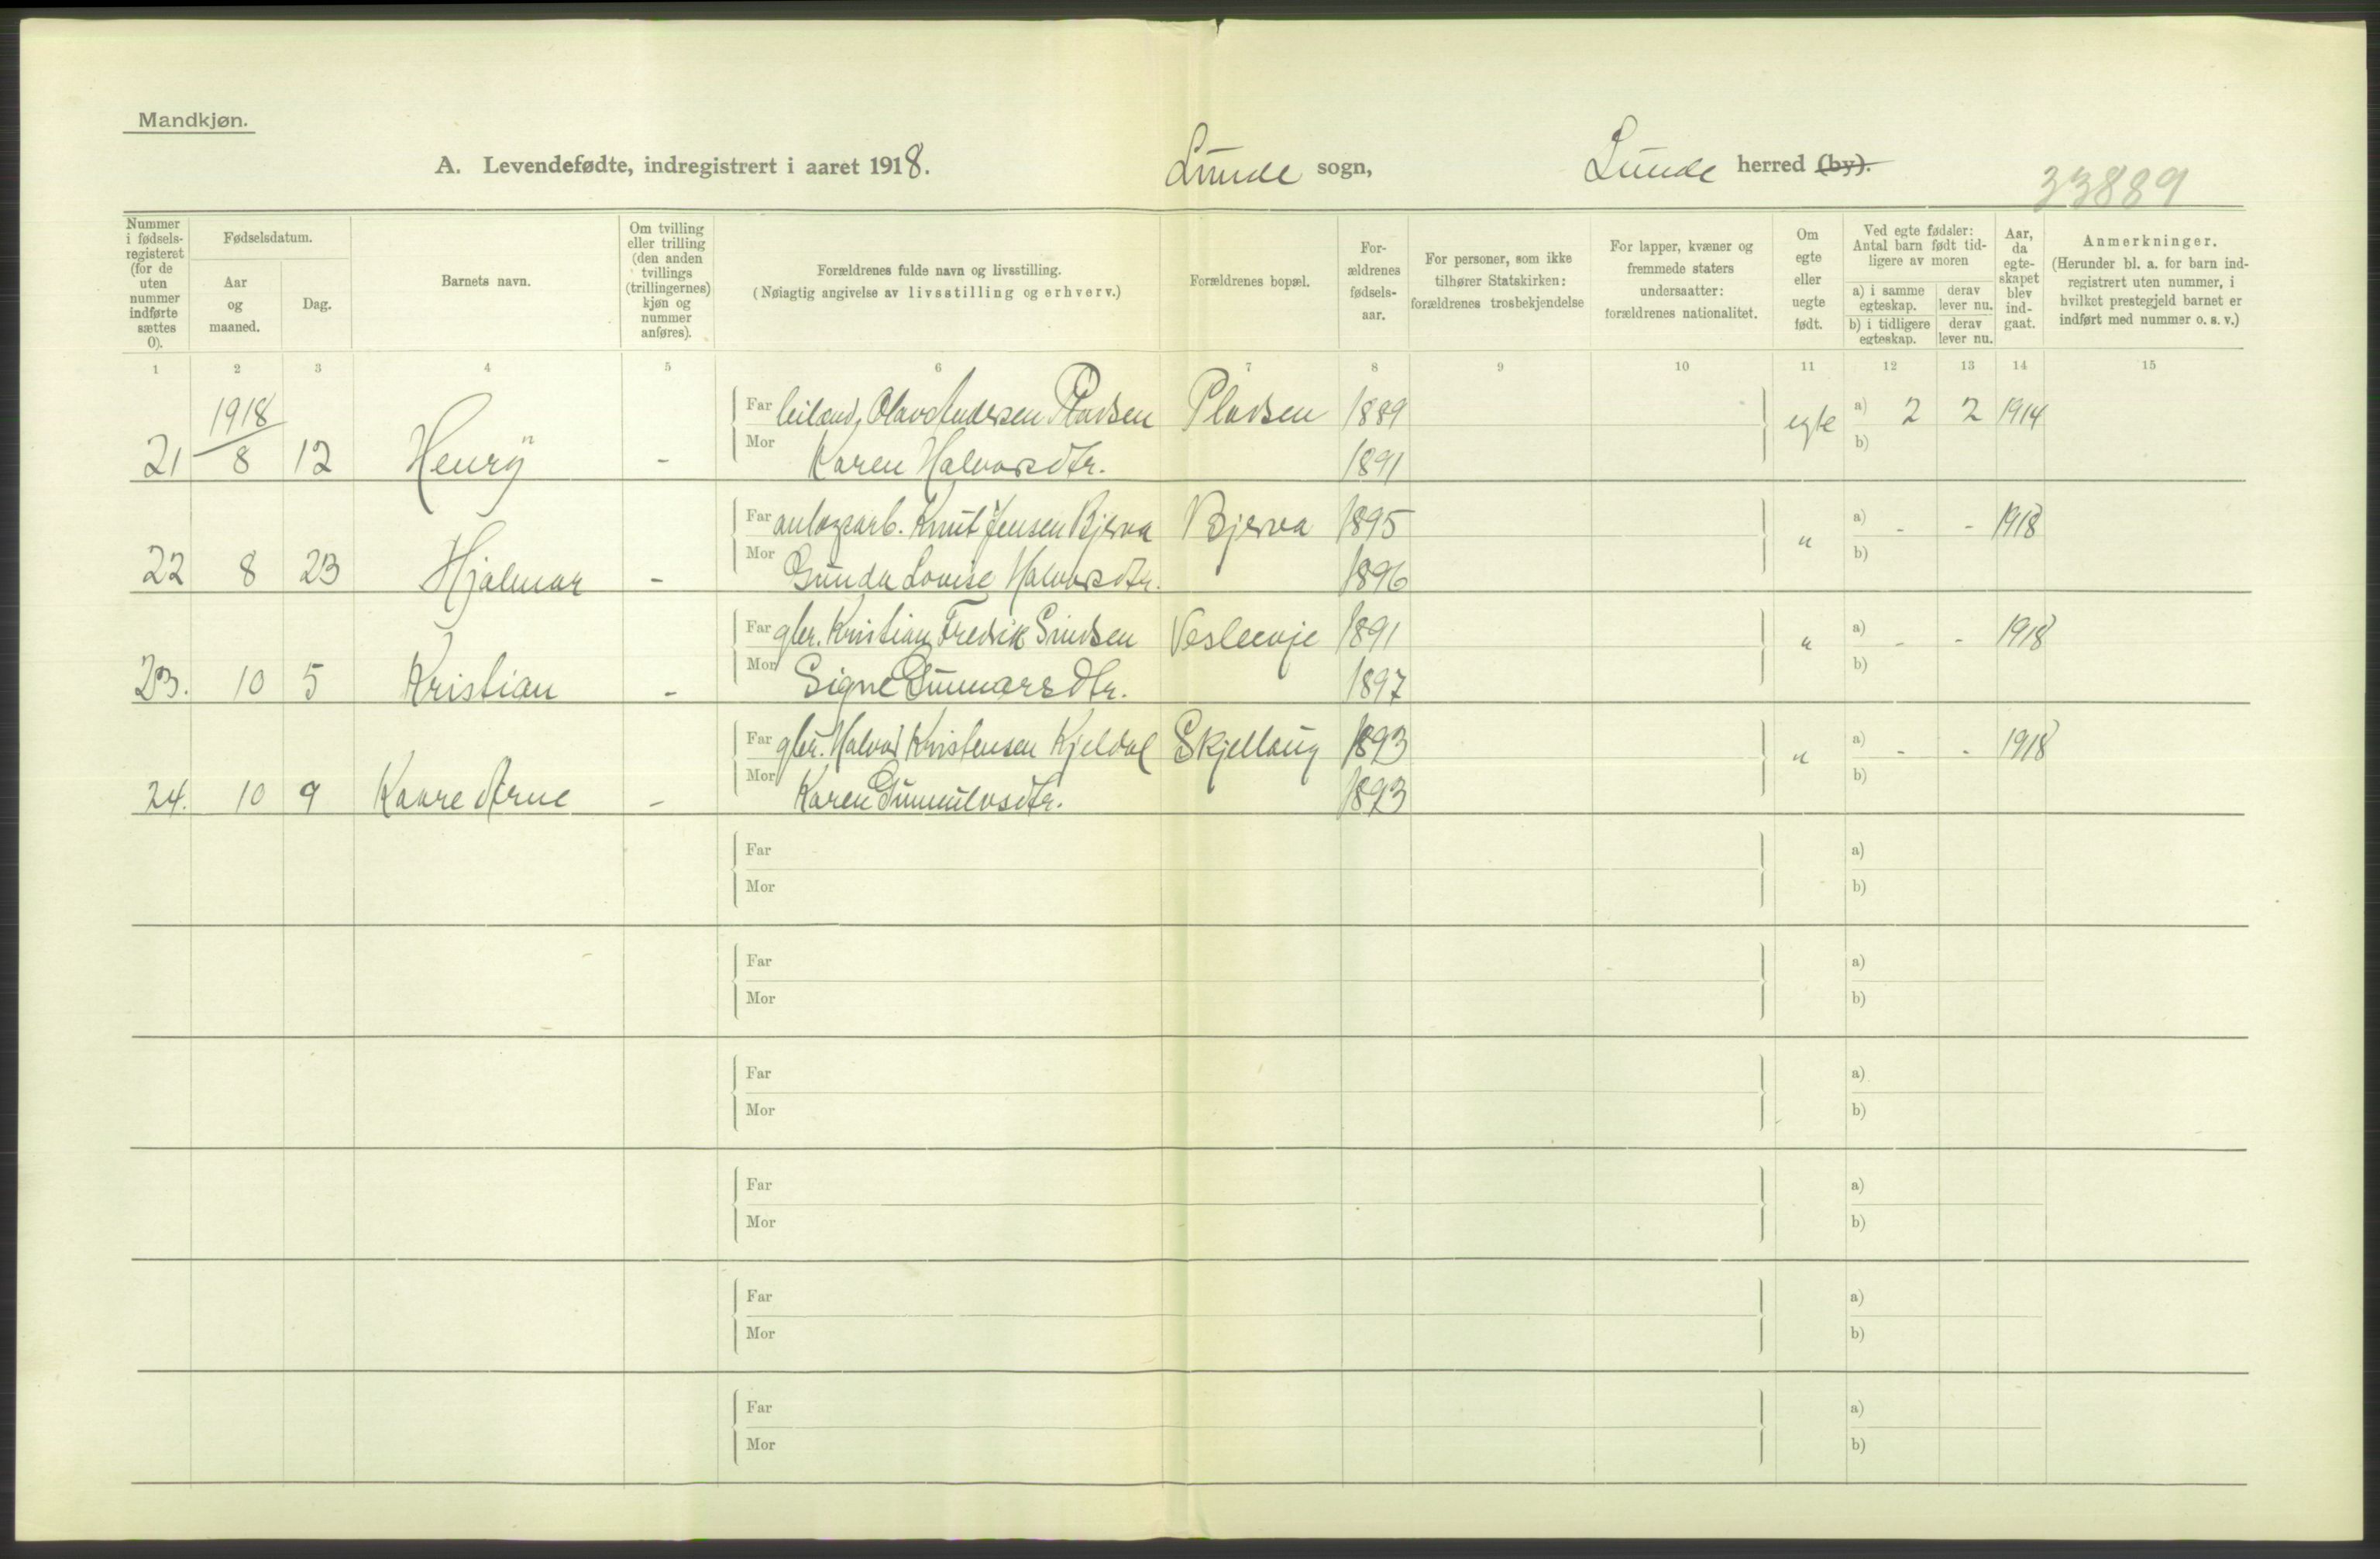 Mandkjøn.
A. Levendefødte, indregistrert i aaret 1918. Lunde sogn, Lunde herred (by).
33889
Nummer i fødsels-registeret (for de uten nummer indførte sættes 0).
Fødselsdatum.
Aar og maaned.
Dag.
Barnets navn.
Om tvilling eller trilling (den anden tvillings (trillingernes) kjøn og nummer anføres).
Forældrenes fulde navn og livsstilling.
(Nøiagtig angivelse av livsstilling og erhverv.)
Forældrenes bopæl.
For-ældrenes fødsels-aar.
For personer, som ikke tilhører Statskirken: forældrenes trosbekjendelse
For lapper, kvæner og fremmede staters undersaatter: forældrenes nationalitet.
Om egte eller uegte født.
Ved egte fødsler: Antal barn født tid-ligere av moren
a) i samme egteskap. derav lever nu.
b) i tidligere egteskap. derav lever nu.
Aar, da egte-skapet blev ind-gaat.
Anmerkninger.
(Herunder bl. a. for barn ind-registrert uten nummer, i hvilket prestegjeld barnet er indført med nummer o. s. v.)
1 2 3 4 5 6 7 8 9 10 11 12 13 14 15
1918
Far leilænd, Olav Andersen Pladsen Pladsen 1889 egte a) 2 2 1914
21 8 12 Henry - Mor Karen Halvorsdtr. 1891 b)
Far anlægsarb. Knut Jensen Bjerva Bjerva 1895 " a) - - 1918
22 8 23 Hjalmar - Mor Gunda Lovise Halvorsdtr. 1896 b)
Far gbr. Kristian Fredrik Vesleøie 1891 " a) - - 1918
23. 10 5 Kristian - Mor Signe Gunnarsdtr. 1897 b)
Far gbr. Halvor Kristensen Kjeldal Skjellaug 1893 " a) - - 1918
24. 10 9 Kaare Arne - Mor Karen Gunnulvsdtr. 1893 b)
Far a)
Mor b)
Far a)
Mor b)
Far a)
Mor b)
Far a)
Mor b)
Far a)
Mor b)
Far a)
Mor b)